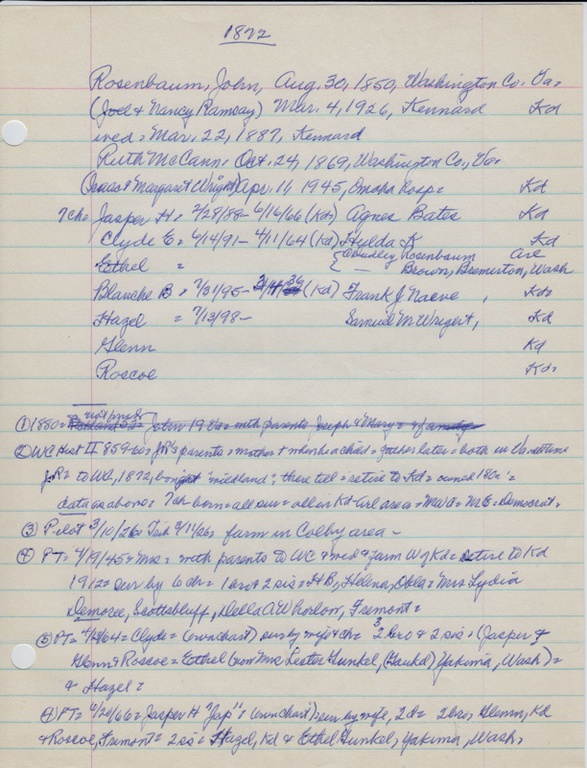 1872
Rosenbaum, John, Aug. 30, 1850, Washington Co. Va.
(Joel & Nancy Ramsay) Mar. 4, 1926, Kennard Kd
wed = Mar. 22, 1887, Kennard
Ruth McCann = Oct. 24, 1869, Washington Co., Va.
& Margaret Wright) Apr. 11 1945, Omaha Hosp = Kd
7ch = Jasper H = 2/28/88 - 6/16/66 (Kds) Agnes Bates Kd
Clyde E = 6/14/91 - 4/11/64 (Kd) Hylda K Kd
Ethel = Rosenbaum are
Brown, Bremerton, Wash
Blanche B = 7/31/95 - (Kd) Frank J Naeve, Kd =
Hazel = 7/13/98 - Samuel M Wrigert, Kd
Glenn Kd
Roscoe Kd =
① 1880 = John 19 Va = with parents Joseph & Mary =
② WC Hist II 859-60 = JR's parents = mother & when he a child = father later = both in Va =
JR = to WC, 1872, bought "midland", there till = retire to Kd = owned 180a =
data as above = 7ch born = all sur = all in Kd = MWA = ME = Democrat =
③ Pilot 3/10/26 = 3/11/26 = farm in Colby area -
④ PT = 4/19/45 = Mrs = with parents to WC & wed & farm W of Kd = retire to Kd
1912 = sur by 6 ch = 1 bro & 2 sis = HB, Helena, Okla = Mrs Lydia
Demoree, Scottsbluff, Della A Whorlow, Fremont =
⑤ PT = 4/16/64 = Clyde = (own chart) sur by wife & ch = 2 bro & 2 sis = (Jasper &
Glenn & Roscoe = Ethel (now Mrs Lester Gunkel, Yakima, Wash) =
& Hazel =
PT = 6/20/66 = Jasper H "Jap" = (own chart) = sur by wife, 2 d = 2 bro, Glenn, Kd
& Roscoe, Fremont = 2 sis = Hazel, Kd & Ethel Gunkel, Yakima, Wash,